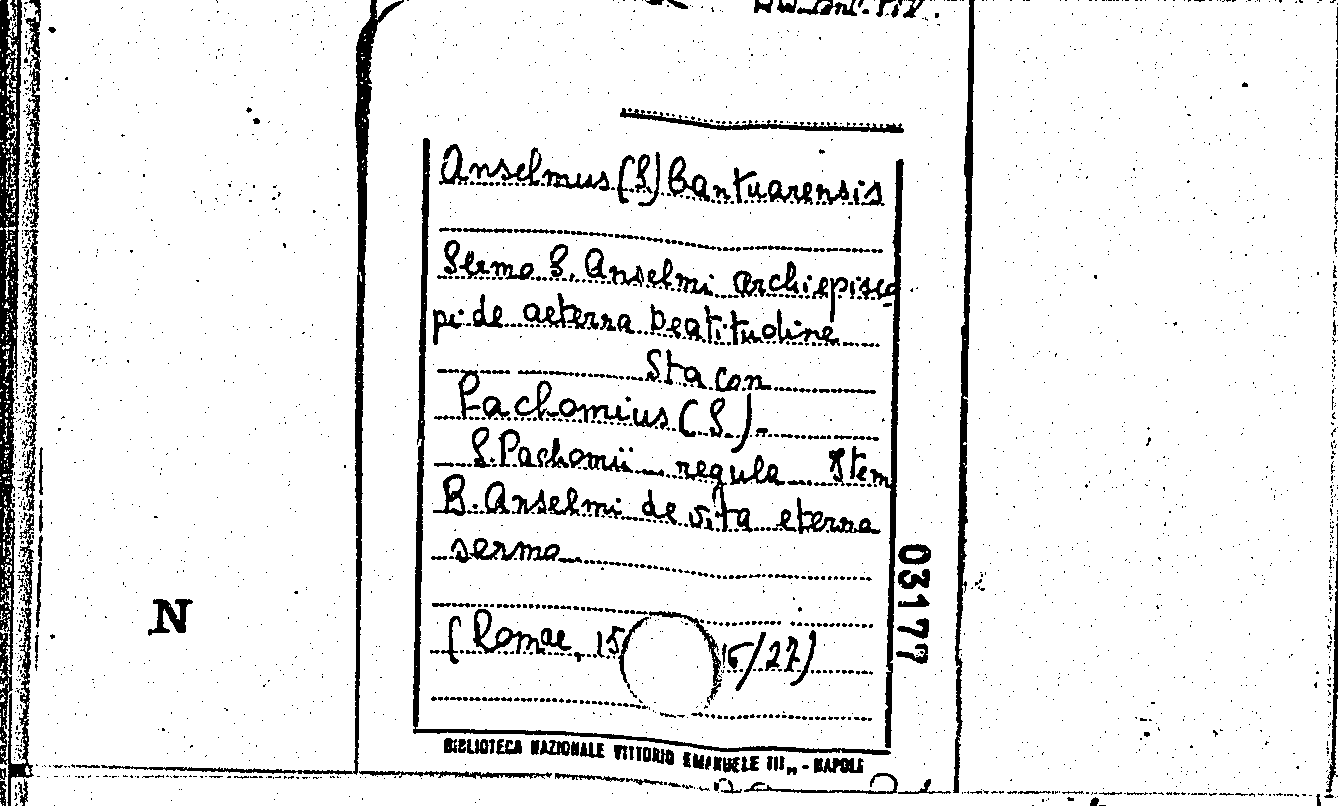 Anselmus (S) Cantuarensis
Sermo S. Anselmi archiepisco
pi de aeterna beatitudine
Sta con
Pachomius (S).-
S. Pachomii regula Item
B. Anselmi de vita eterna
sermo
(Romae, 15 /27)
03177
N
BIBLIOTECA NAZIONALE VITTORIO EMANUELE III„ - NAPOLI